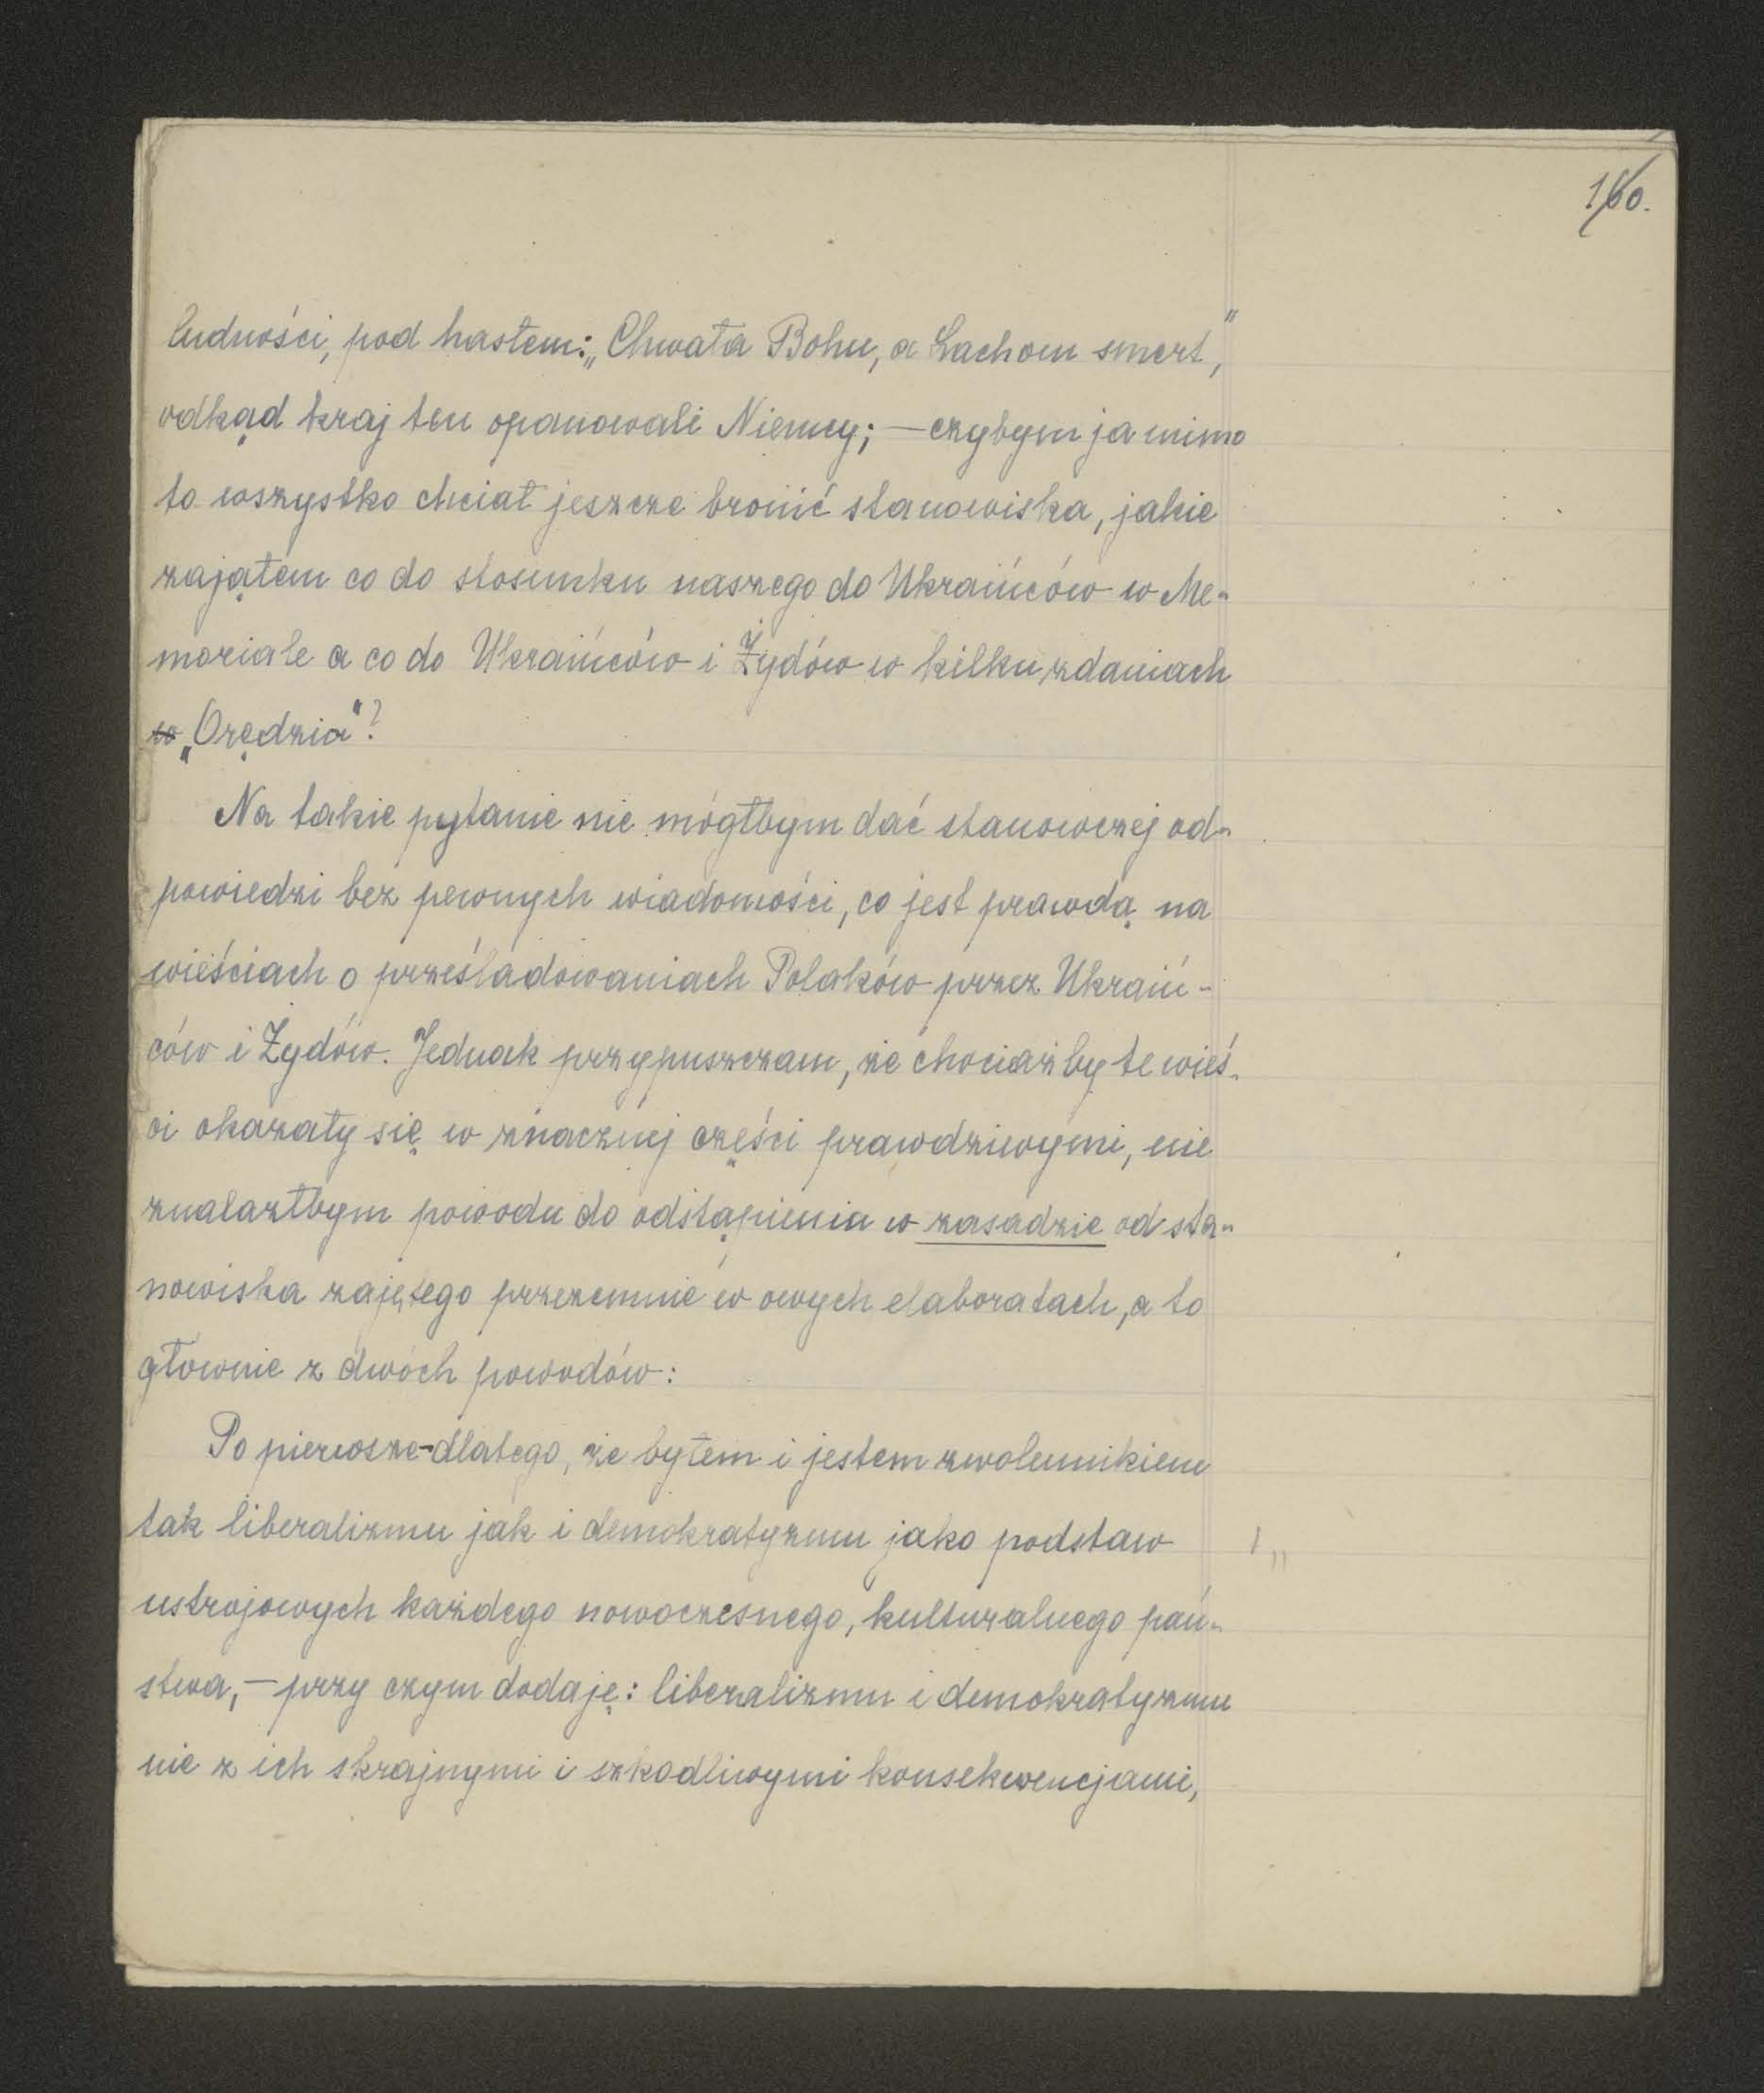 160.
ludności, pod hasłem: „Chwała Bohu, a Lachom smert,"
odkąd kraj ten opanowali Niemcy; — czybym ja mimo
to wszystko chciał jeszcze bronić stanowiska, jakie
zająłem co do stosunku naszego do Ukraińców w Me-
moriale a co do Ukraińców i Żydów w kilku zdaniach
w „Orędzia"?
Na takie pytanie nie mógłbym dać stanowczej od-
powiedzi bez pewnych wiadomości, co jest prawdą na
wieściach o prześladowaniach Polaków przez Ukraiń-
ców i Żydów. Jednak przypuszczam, że chociażby te wieś-
ci okazały się w znacznej części prawdziwymi, nie
znalazłbym powodu do odstąpienia w zasadzie od sta-
nowiska zajętego przezemnie w owych elaboratach, a to
głównie z dwóch powodów:
Po pierwsze-dlatego, że byłem i jestem zwolennikiem
tak liberalizmu jak i demokratyzmu jako podstaw
ustrojowych każdego nowoczesnego, kulturalnego pań-
stwa, — przy czym dodaję: liberalizmu i demokratyzmu
nie z ich skrajnymi i szkodliwymi konsekwencjami,